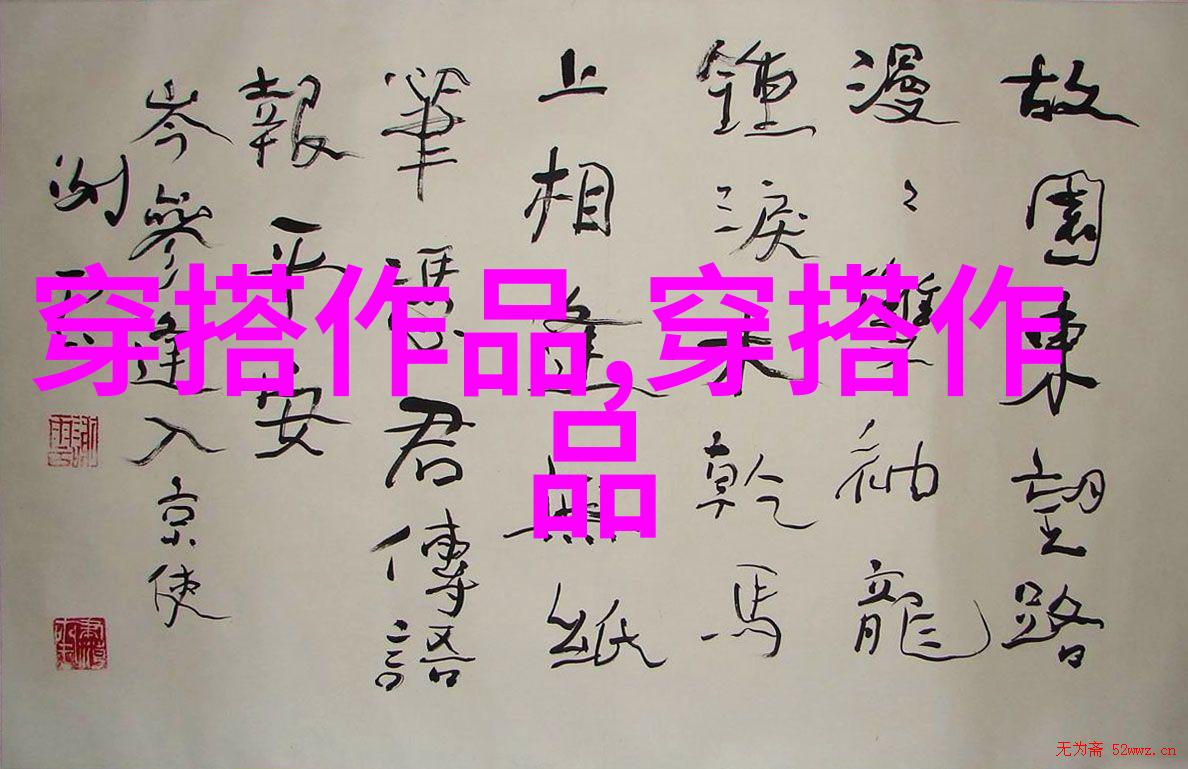 故園東望路
漫〻雙袖龍
鍾淚不乾馬
上相逢無紙
筆憑君傳語
報平安
岑參逢入京使
穿搭作品,穿搭作
品
无为斋 52wwz.cn